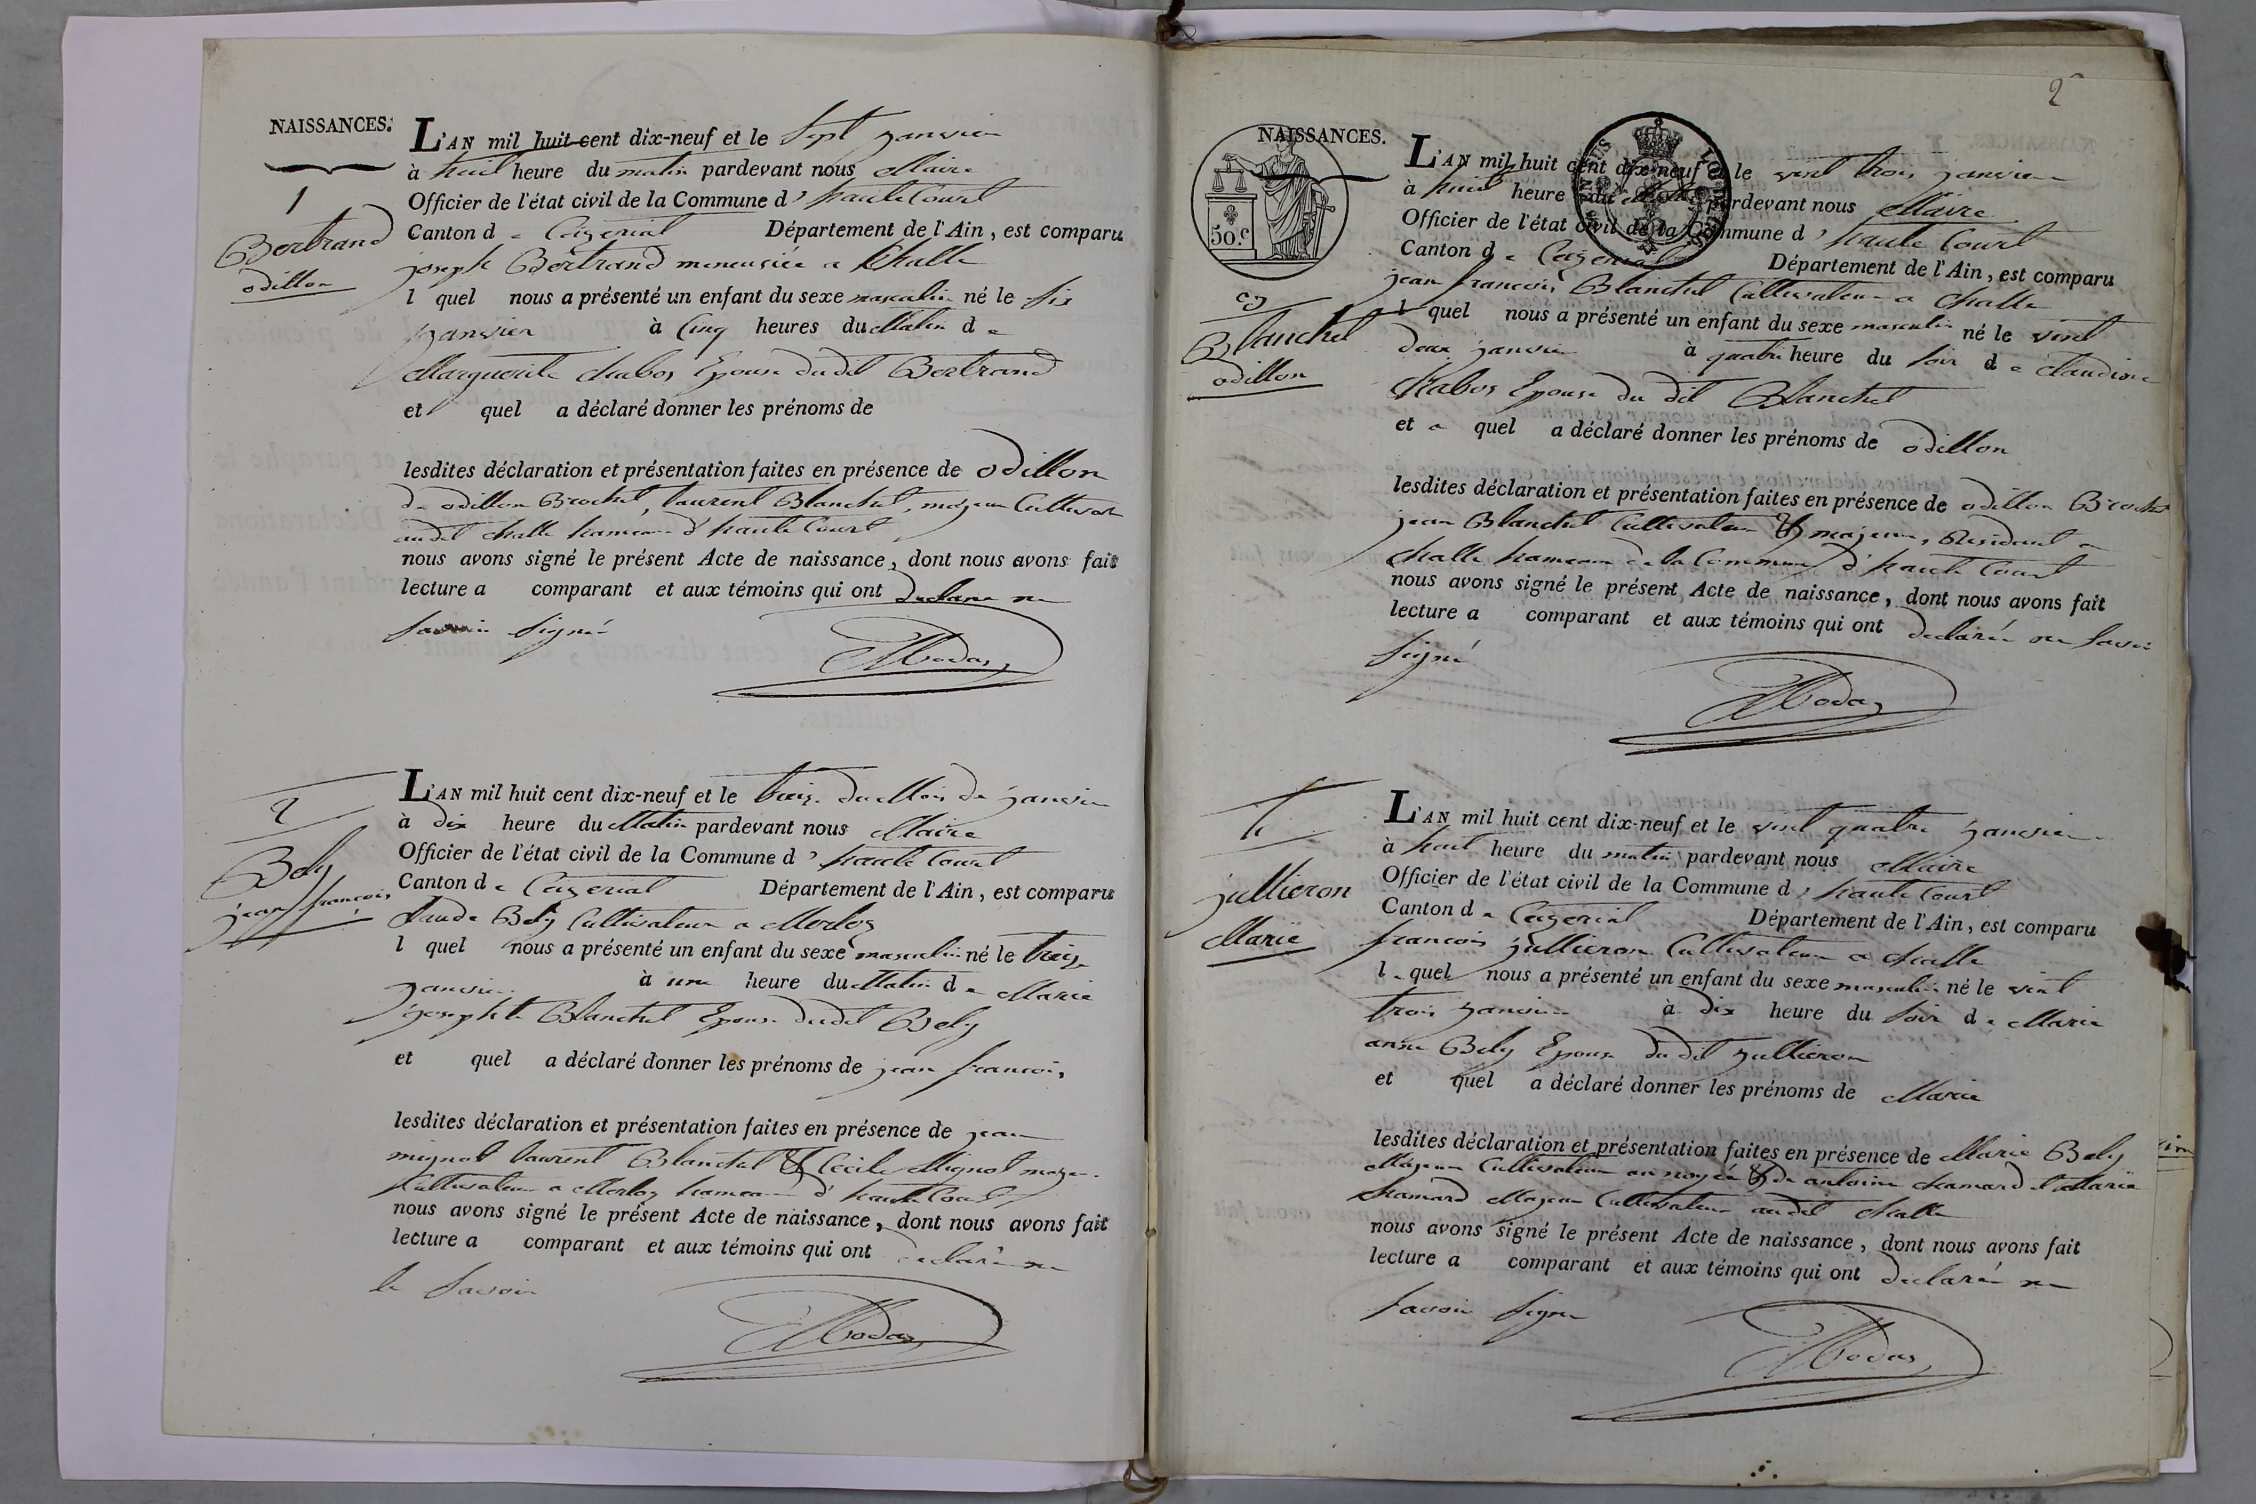 NAISSANCES.
1
Bertrand
odillon
L'AN mil huit cent dix-neuf et le sept janvier
à huit heure du matin pardevant nous Maire
Officier de l'état civil de la Commune d' haute Court
Canton de Ceyzeriat Département de l'Ain, est comparu
joseph Bertrand menusier a Challe
l quel nous a présenté un enfant du sexe masculin né le six
janvier à Cinq heures du Matin de
Marguerite Chabos Epouse du dit Bertrand
et quel a déclaré donner les prénoms de
lesdites déclaration et présentation faites en présence de odillon
de odillon Brochet, laurent Blanchet, majeur Cultivat
au dit Challe hameau d'haute Court
nous avons signé le présent Acte de naissance, dont nous avons fait
lecture a comparant et aux témoins qui ont declare ne
savoir signé
2
Bely
jean francois
L'AN mil huit cent dix-neuf et le treize du Mois de janvier
à dix heure du Matin pardevant nous Maire
Officier de l'état civil de la Commune d' haute Court
Canton de Ceyzeriat Département de l'Ain, est comparu
Claude Bely Cultivateur a Merloz
l quel nous a présenté un enfant du sexe masculin né le treize
janvier à une heure du Matin de Marie
josephte Blanchet Epouse du dit Bely
et quel a déclaré donner les prénoms de jean francois,
lesdites déclaration et présentation faites en présence de jean
mignot laurent Blanchet & Cecile Mignot majeu
Cultivateur a Merloz hameau d' haute Court
nous avons signé le présent Acte de naissance, dont nous avons fait
lecture a comparant et aux témoins qui ont declaré ne
le savoir
2
NAISSANCES.
50.c
3
Blanchet
odillon
L'AN mil huit cent dix-neuf et le vint trois janvier
à huit heure du pardevant nous Maire
Officier de l'état civil de la Commune d' haute Court
Canton de Ceyzeriat Département de l'Ain, est comparu
jean francois Blanchet Cultivateur a Challe
l quel nous a présenté un enfant du sexe masculin né le vint
deux janvier à quatre heure du soir de Claudine
Chabos Epouse du dit Blanchet
et e quel a déclaré donner les prénoms de odillon
lesdites déclaration et présentation faites en présence de odillon Brochet
jean Blanchet Cultivateur & majeur, Residant a
Challe hameau de la Commune d' haute Court
nous avons signé le présent Acte de naissance, dont nous avons fait
lecture a comparant et aux témoins qui ont declarée ne savoir
signé
4
jullieron
Marie
L'AN mil huit cent dix-neuf et le vint quatre janvier
à huit heure du matin pardevant nous Maire
Officier de l'état civil de la Commune d' haute Court
Canton de Ceyzeriat Département de l'Ain, est comparu
francois jullieron Cultivateur a Challe
le quel nous a présenté un enfant du sexe masculin né le vint
trois janvier à dix heure du soir de Marie
anne Bely Epouse du dit jullieron
et quel a déclaré donner les prénoms de Marie
lesdites déclaration et présentation faites en présence de Marie Bely
Majeur Cultivateur au noyée & de antoine chanard et Marie
chanard Majeur Cultivateur au dit Challe
nous avons signé le présent Acte de naissance, dont nous avons fait
lecture a comparant et aux témoins qui ont declarée ne
savoir signe